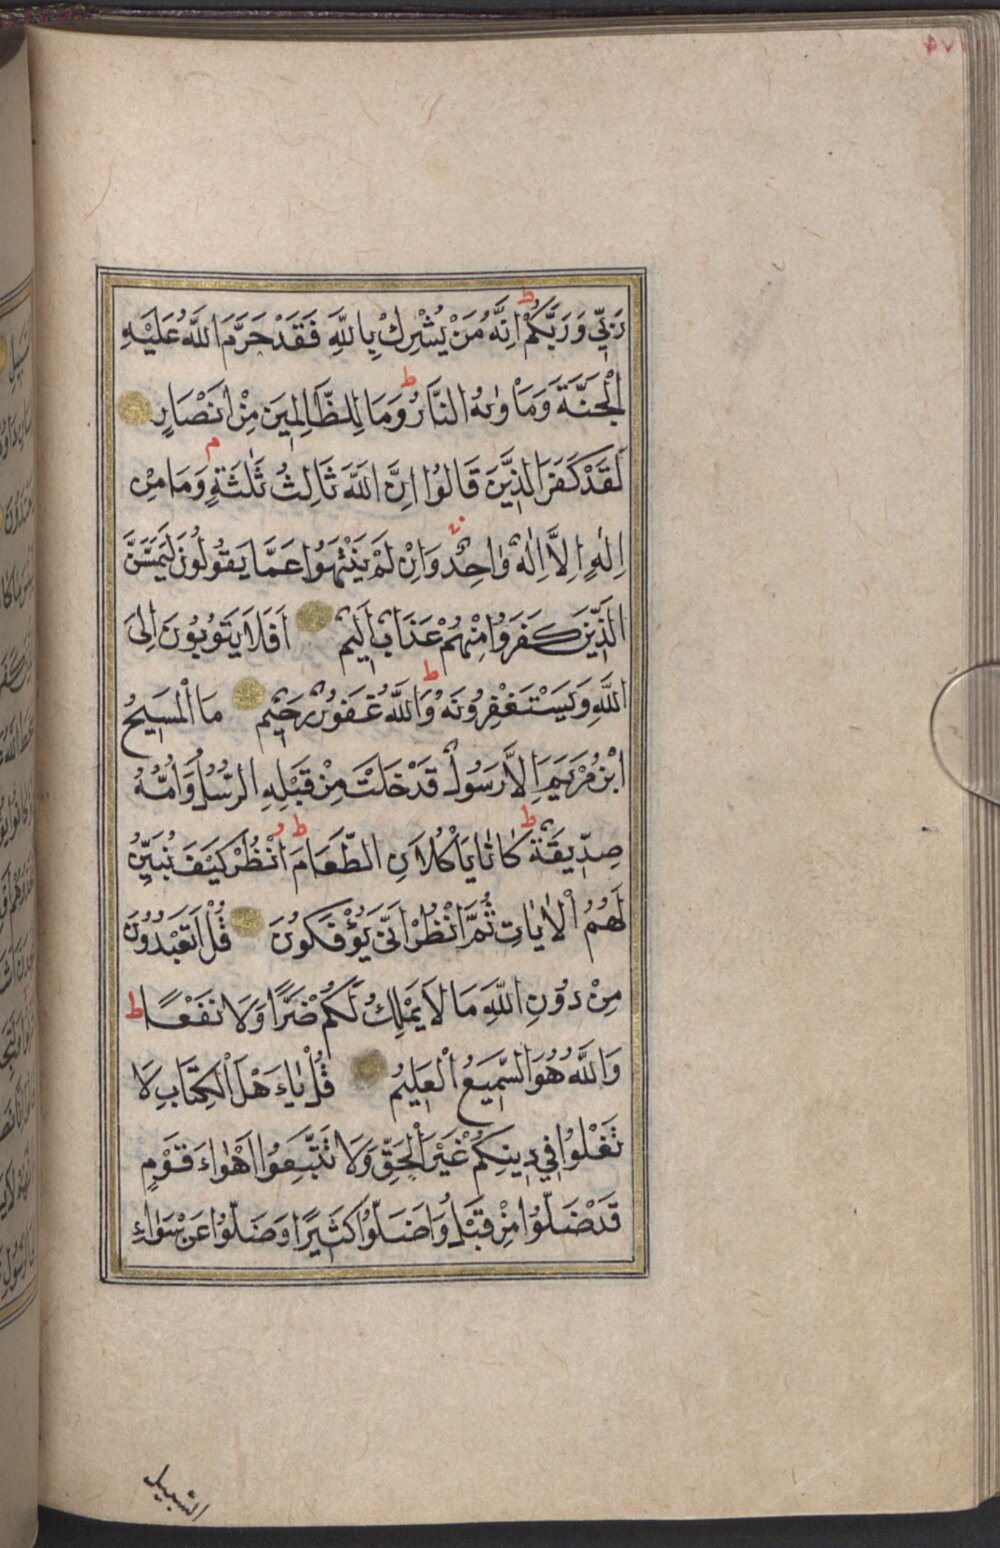 رَبِّي وَرَبَّكُمْ ط اِنَّهُ مَنْ يُشْرِكْ بِاللَّهِ فَقَدْ حَرَّمَ اللَّهُ عَلَيْهِ
الْجَنَّةَ وَمَأْوٰيهُ النَّارُ ط وَمَا لِلظَّالِمِينَ مِنْ اَنْصَارٍ
لَقَدْ كَفَرَ الَّذِينَ قَالُوا اِنَّ اللَّهَ ثَالِثُ ثَلٰثَةٍ م وَمَا مِنْ
اِلٰهٍ اِلَّا اِلٰهٌ وَاحِدٌ وَاِنْ لَمْ يَنْتَهُوا عَمَّا يَقُولُونَ لَيَمَسَّنَّ
الَّذِينَ كَفَرُوا مِنْهُمْ عَذَابٌ اَلِيمٌ اَفَلَا يَتُوبُونَ اِلَى
اللَّهِ وَيَسْتَغْفِرُونَهُ ط وَاللَّهُ غَفُورٌ رَحِيمٌ مَا الْمَسِيحُ
ابْنُ مَرْيَمَ اِلَّا رَسُولٌ قَدْ خَلَتْ مِنْ قَبْلِهِ الرُّسُلُ وَاُمُّهُ
صِدِّيقَةٌ ط كَانَا يَأْكُلَانِ الطَّعَامَ ط اُنْظُرْ كَيْفَ نُبَيِّنُ
لَهُمُ الْاٰيَاتِ ثُمَّ انْظُرْ اَنّٰى يُؤْفَكُونَ قُلْ اَتَعْبُدُونَ
مِنْ دُونِ اللَّهِ مَا لَا يَمْلِكُ لَكُمْ ضَرًّا وَلَا نَفْعًا ط
وَاللَّهُ هُوَ السَّمِيعُ الْعَلِيمُ قُلْ يَاءَهْلَ الْكِتَابِ لَا
تَغْلُوا فِي دِينِكُمْ غَيْرَ الْحَقِّ وَلَا تَتَّبِعُوا اَهْوَاءَ قَوْمٍ
قَدْ ضَلُّوا مِنْ قَبْلُ وَاَضَلُّوا كَثِيرًا وَضَلُّوا عَنْ سَوَاءِ
السبيل